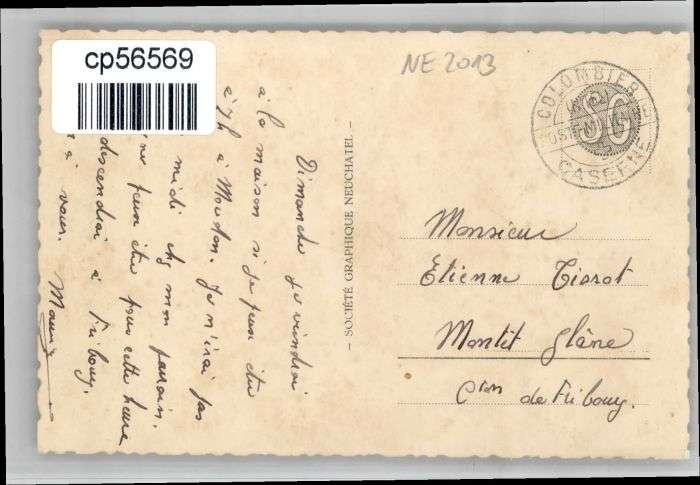 cp56569
NE 2013
COLOMBIER
CASERNE
Dimanche je viendrai
à la maison si je peux être
à 7h à Moudon. Je n'irai pas
midi chez mon parrain.
ne peux être pour cette heure
descendrai à Fribourg.
à vous.
- SOCIÉTÉ GRAPHIQUE NEUCHATEL -
Monsieur
Etienne
Montet Glâne
Cton de Fribourg.